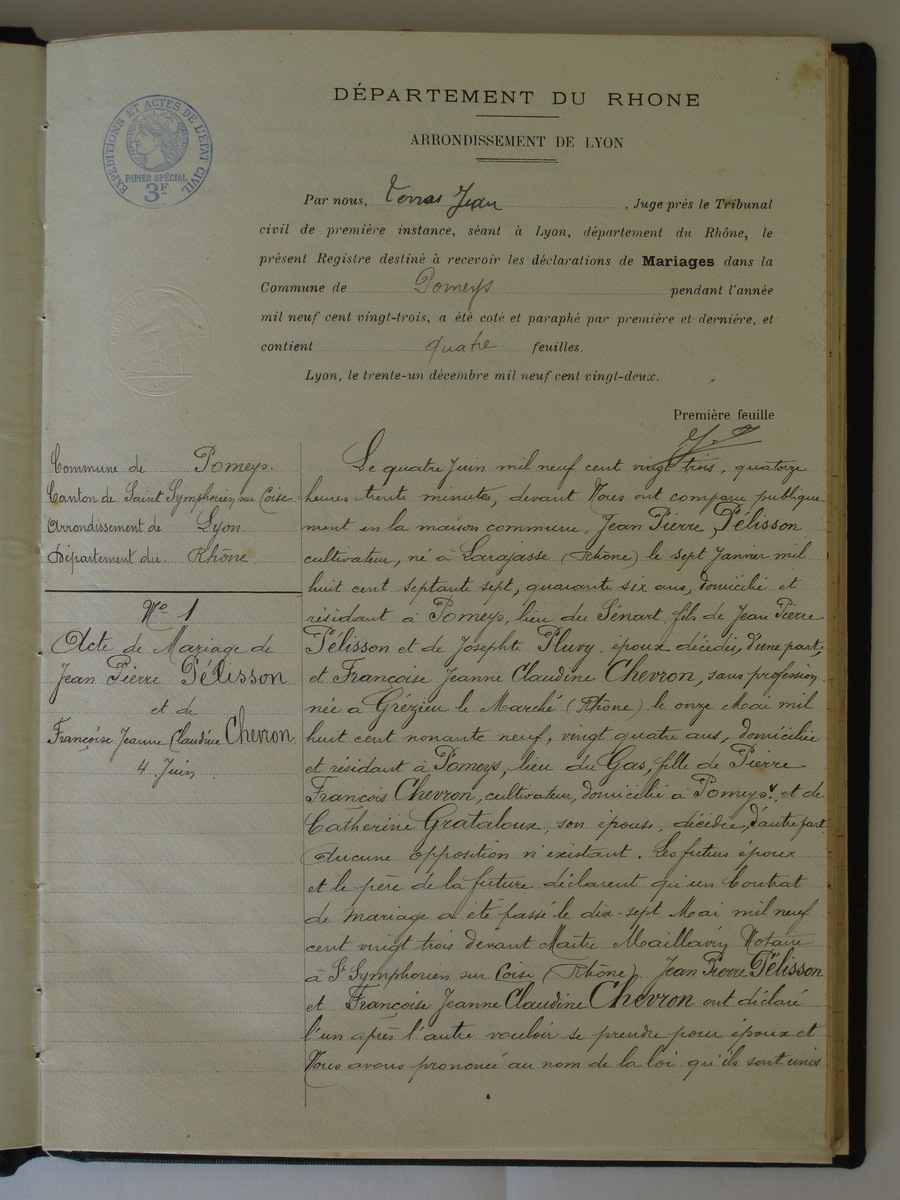 EXPÉDITIONS ET ACTES DE L'ÉTAT CIVIL
PAPIER SPÉCIAL
3F
DÉPARTEMENT DU RHONE
ARRONDISSEMENT DE LYON
Par nous, Jean, Juge près le Tribunal
civil de première instance, séant à Lyon, département du Rhône, le
présent Registre destiné à recevoir les déclarations de Mariages dans la
Commune de Pomeys pendant l'année
mil neuf cent vingt-trois, a été coté et paraphé par première et dernière, et
contient quatre feuilles.
Lyon, le trente-un décembre mil neuf cent vingt-deux.
Première feuille
Commune de Pomeys.
Canton de Saint Symphorien sur Coise
Arrondissement de Lyon
Département du Rhône.
No 1
Acte de Mariage de
Jean Pierre Pélisson
et de
Françoise Jeanne Claudine Chevron.
4 Juin
Le quatre Juin mil neuf cent vingt trois, quatorze
heures trente minutes, devant Nous ont comparu publique-
ment en la maison commune, Jean Pierre Pélisson
cultivateur, né à Larajasse (Rhône) le sept Janvier mil
huit cent septante sept, quarante six ans, domicilié et
résidant à Pomeys, lieu du Sénart, fils de Jean Pierre
Pélisson et de Josephte Pluvy, époux décédés, d'une part;
et Françoise Jeanne Claudine Chevron, sans profession
née à Grézieu le Marché (Rhône) le onze Mai mil
huit cent nonante neuf, vingt quatre ans, domiciliée
et résidant à Pomeys, lieu du Gas, fille de Pierre
François Chevron, cultivateur, domicilié à Pomeys, et de
Catherine Grataloux, son épouse, décédée, d'autre part
Aucune opposition n'existant. Les futurs époux
et le père de la future déclarent qu'un Contrat
de Mariage a été passé le dix-sept Mai mil neuf
cent vingt trois devant Maître Maillavin Notaire
à St Symphorien sur Coise (Rhône). Jean Pierre Pélisson
et Françoise Jeanne Claudine Chevron ont déclaré
l'un après l'autre vouloir se prendre pour époux et
Nous avons prononcé au nom de la loi qu'ils sont unis